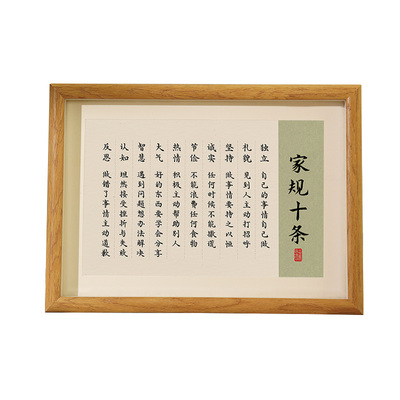 家规十条
独立 自己的事情自己做
礼貌 见到人主动打招呼
坚持 做事情要持之以恒
诚实 任何时候不能撒谎
节俭 不能浪费任何食物
热情 积极主动帮助别人
大气 好的东西要学会分享
智慧 遇到问题想办法解决
认知 坦然接受挫折与失败
反思 做错了事情主动道歉